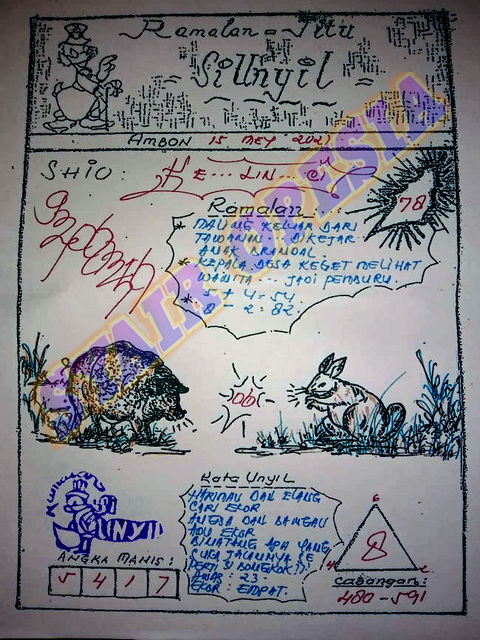 Ramalan = Jitu
Si Unyil
AMBON 15 MEY 202
SHIO: KE... LIN... CI
78
Ramalan
* MALING KELUAR DARI
TAWANAN... DIKEJAR
ANAK BRANDAL
* KEPALA DESA KEGET MELIHAT
WANITA... JADI PEMBURU.
* 5 + 4 = 54.
8 - 2 = 82.
SYAIR OPESIA
Kata Unyil
HARIMAU DAN ELANG
CARI EKOR
ANGSA DAN BANGAU
ADU EKOR
BINATANG APA YANG
SUKA JALANNYA SE
PERTI SI BONGKOK !!!
AWAS : 23 -
EKOR : EMPAT.
UNYIL
ANGKA MANIS :
5 4 1 7
6
8
4 2
Cabangan :
480 - 591